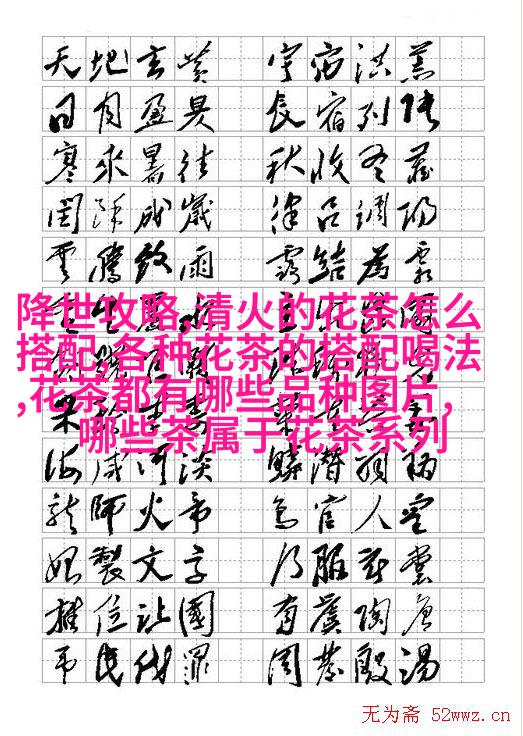 天地玄黃 宇宙洪荒
日月盈昃 辰宿列張
寒來暑往 秋收冬藏
閏餘成歲 律呂調陽
雲騰致雨 露結為霜
降世攻略,清火的花茶怎么
搭配,各种花茶的搭配喝法
,花茶都有哪些品种图片,
哪些茶属于花茶系列
海咸河淡 鱗潛羽翔
龍師火帝 鳥官人皇
始製文字 乃服衣裳
推位讓國 有虞陶唐
弔民伐罪 周發殷湯
无为斋 52wwz.cn